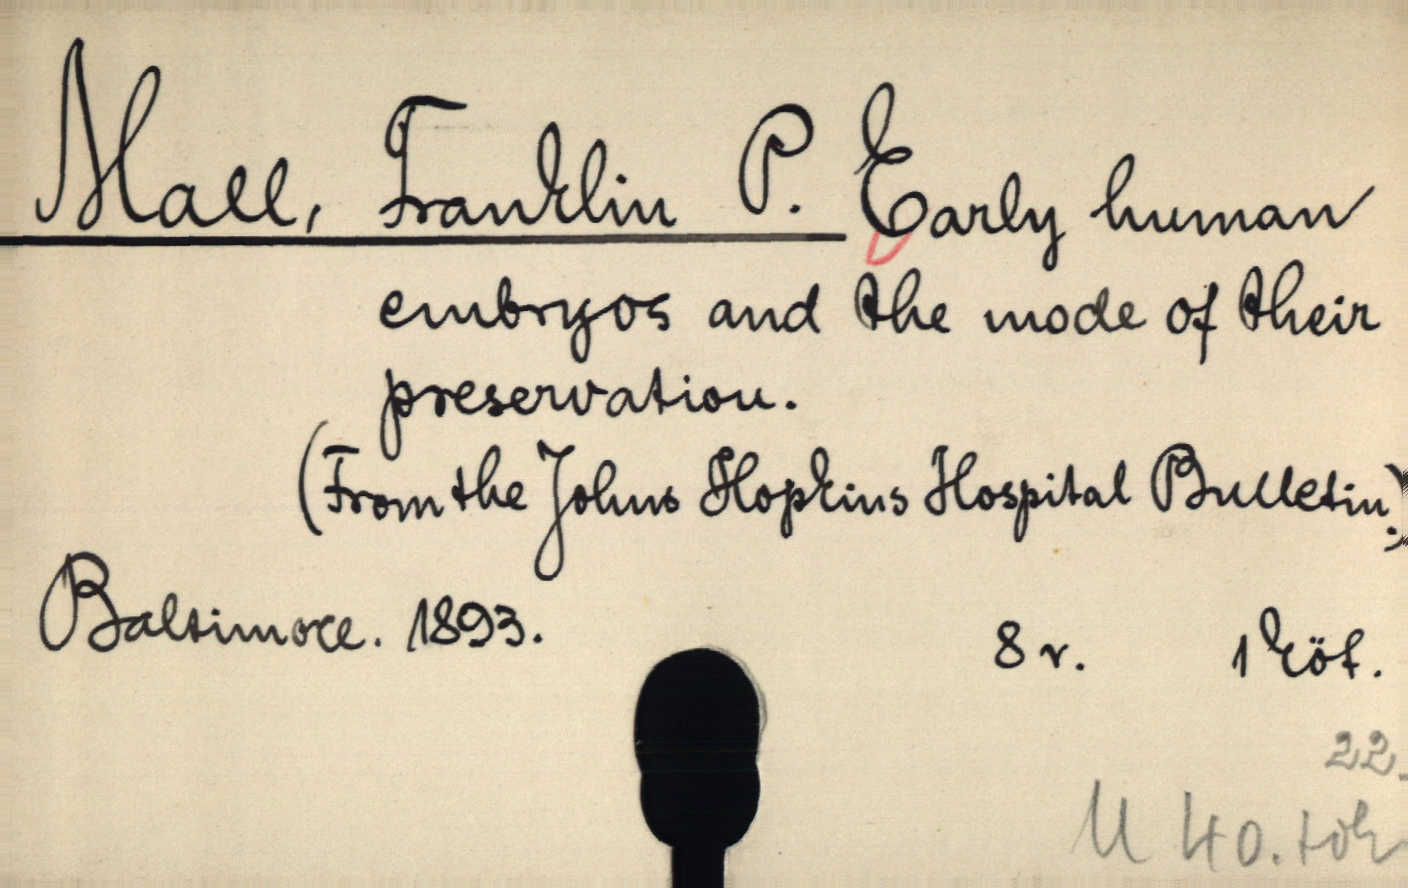 Mall, Franklin P. Early human
embryos and the mode of their
preservation.
(From the Johns Hopkins Hospital Bulletin.)
Baltimore. 1893.
8 r. 1 köt.
22.
U 40.